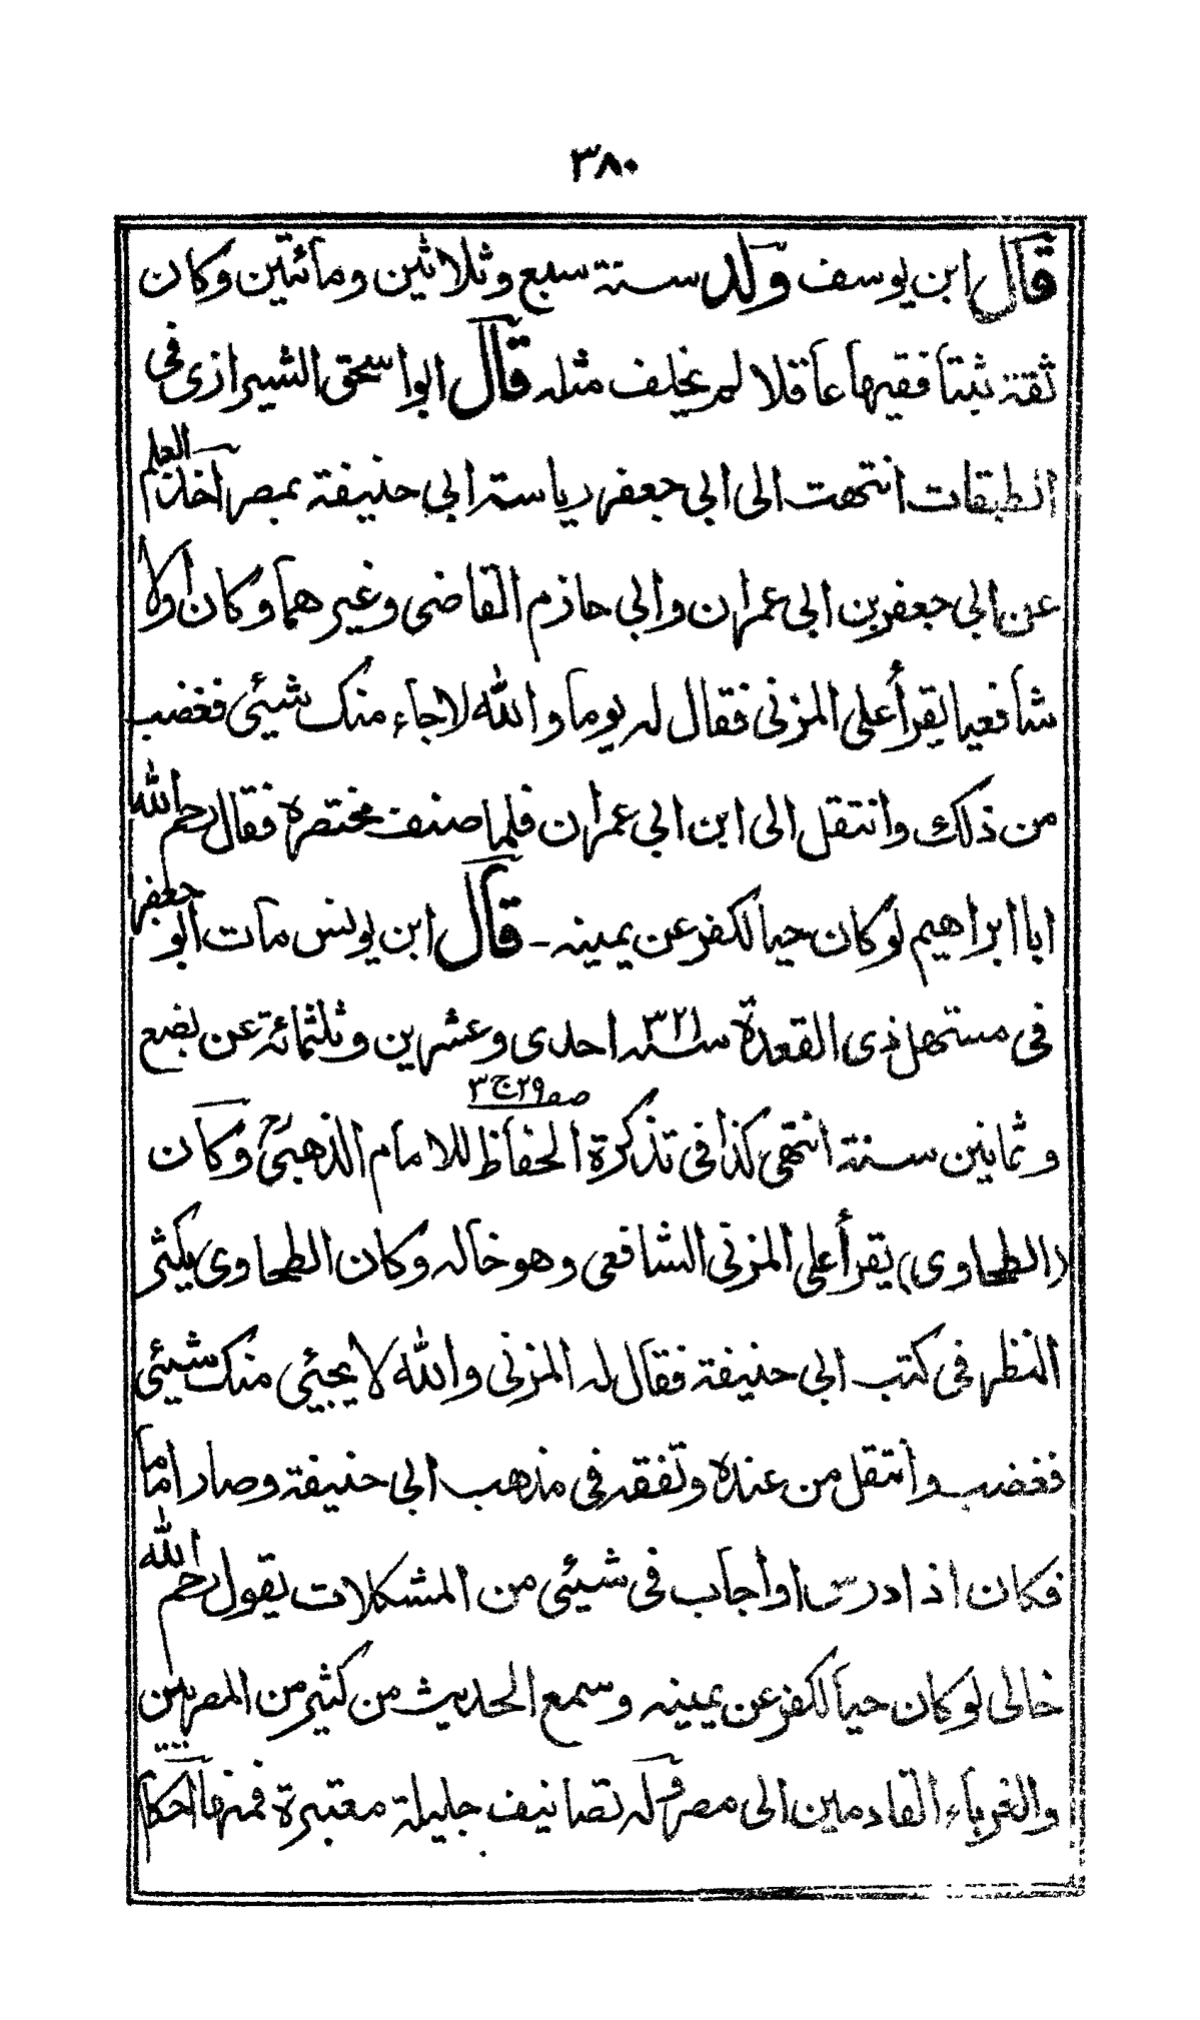 ٣٨٠
قال ابن يوسف ولد سنة سبع وثلاثين ومائتين وكان
ثقة ثبتا فقيها عاقلا لم يخلف مثله قال ابو اسحق الشيرازى فى
الطبقات انتهت الى ابى جعفر رياسة ابى حنيفة بمصر اخذ العلم
عن ابى جعفر بن ابى عمران وابى حازم القاضى وغيرهما وكان اولا
شافعيا يقرأ على المزنى فقال له يوما والله لا جاء منك شيئى فغضب
من ذلك وانتقل الى ابن ابى عمران فلما صنف مختصره قال رحم الله
ابا ابراهيم لو كان حيا لكفر عن يمينه - قال ابن يونس مات ابو جعفر
فى مستهل ذى القعدة سنة ٣٢١ احدى وعشرين وثلثمائة عن بضع
وثمانين سنة انتهى كذا فى تذكرة الحفاظ للامام الذهبىؒ صـ٢٩ ج٣ وكان
(الطحاوى) يقرأ على المزنى الشافعى وهو خاله وكان الطحاوى يكثر
النظر فى كتب ابى حنيفة فقال له المزنى والله لا يجيئى منك شيئى
فغضب وانتقل من عنده وتفقه فى مذهب ابى حنيفة وصار اماما
فكان اذا درس او اجاب فى شيئى من المشكلات يقول رحم الله
خالى لو كان حيا لكفر عن يمينه وسمع الحديث من كثير من المصريين
والغرباء القادمين الى مصر وله تصانيف جليلة معتبرة فمنها احكام